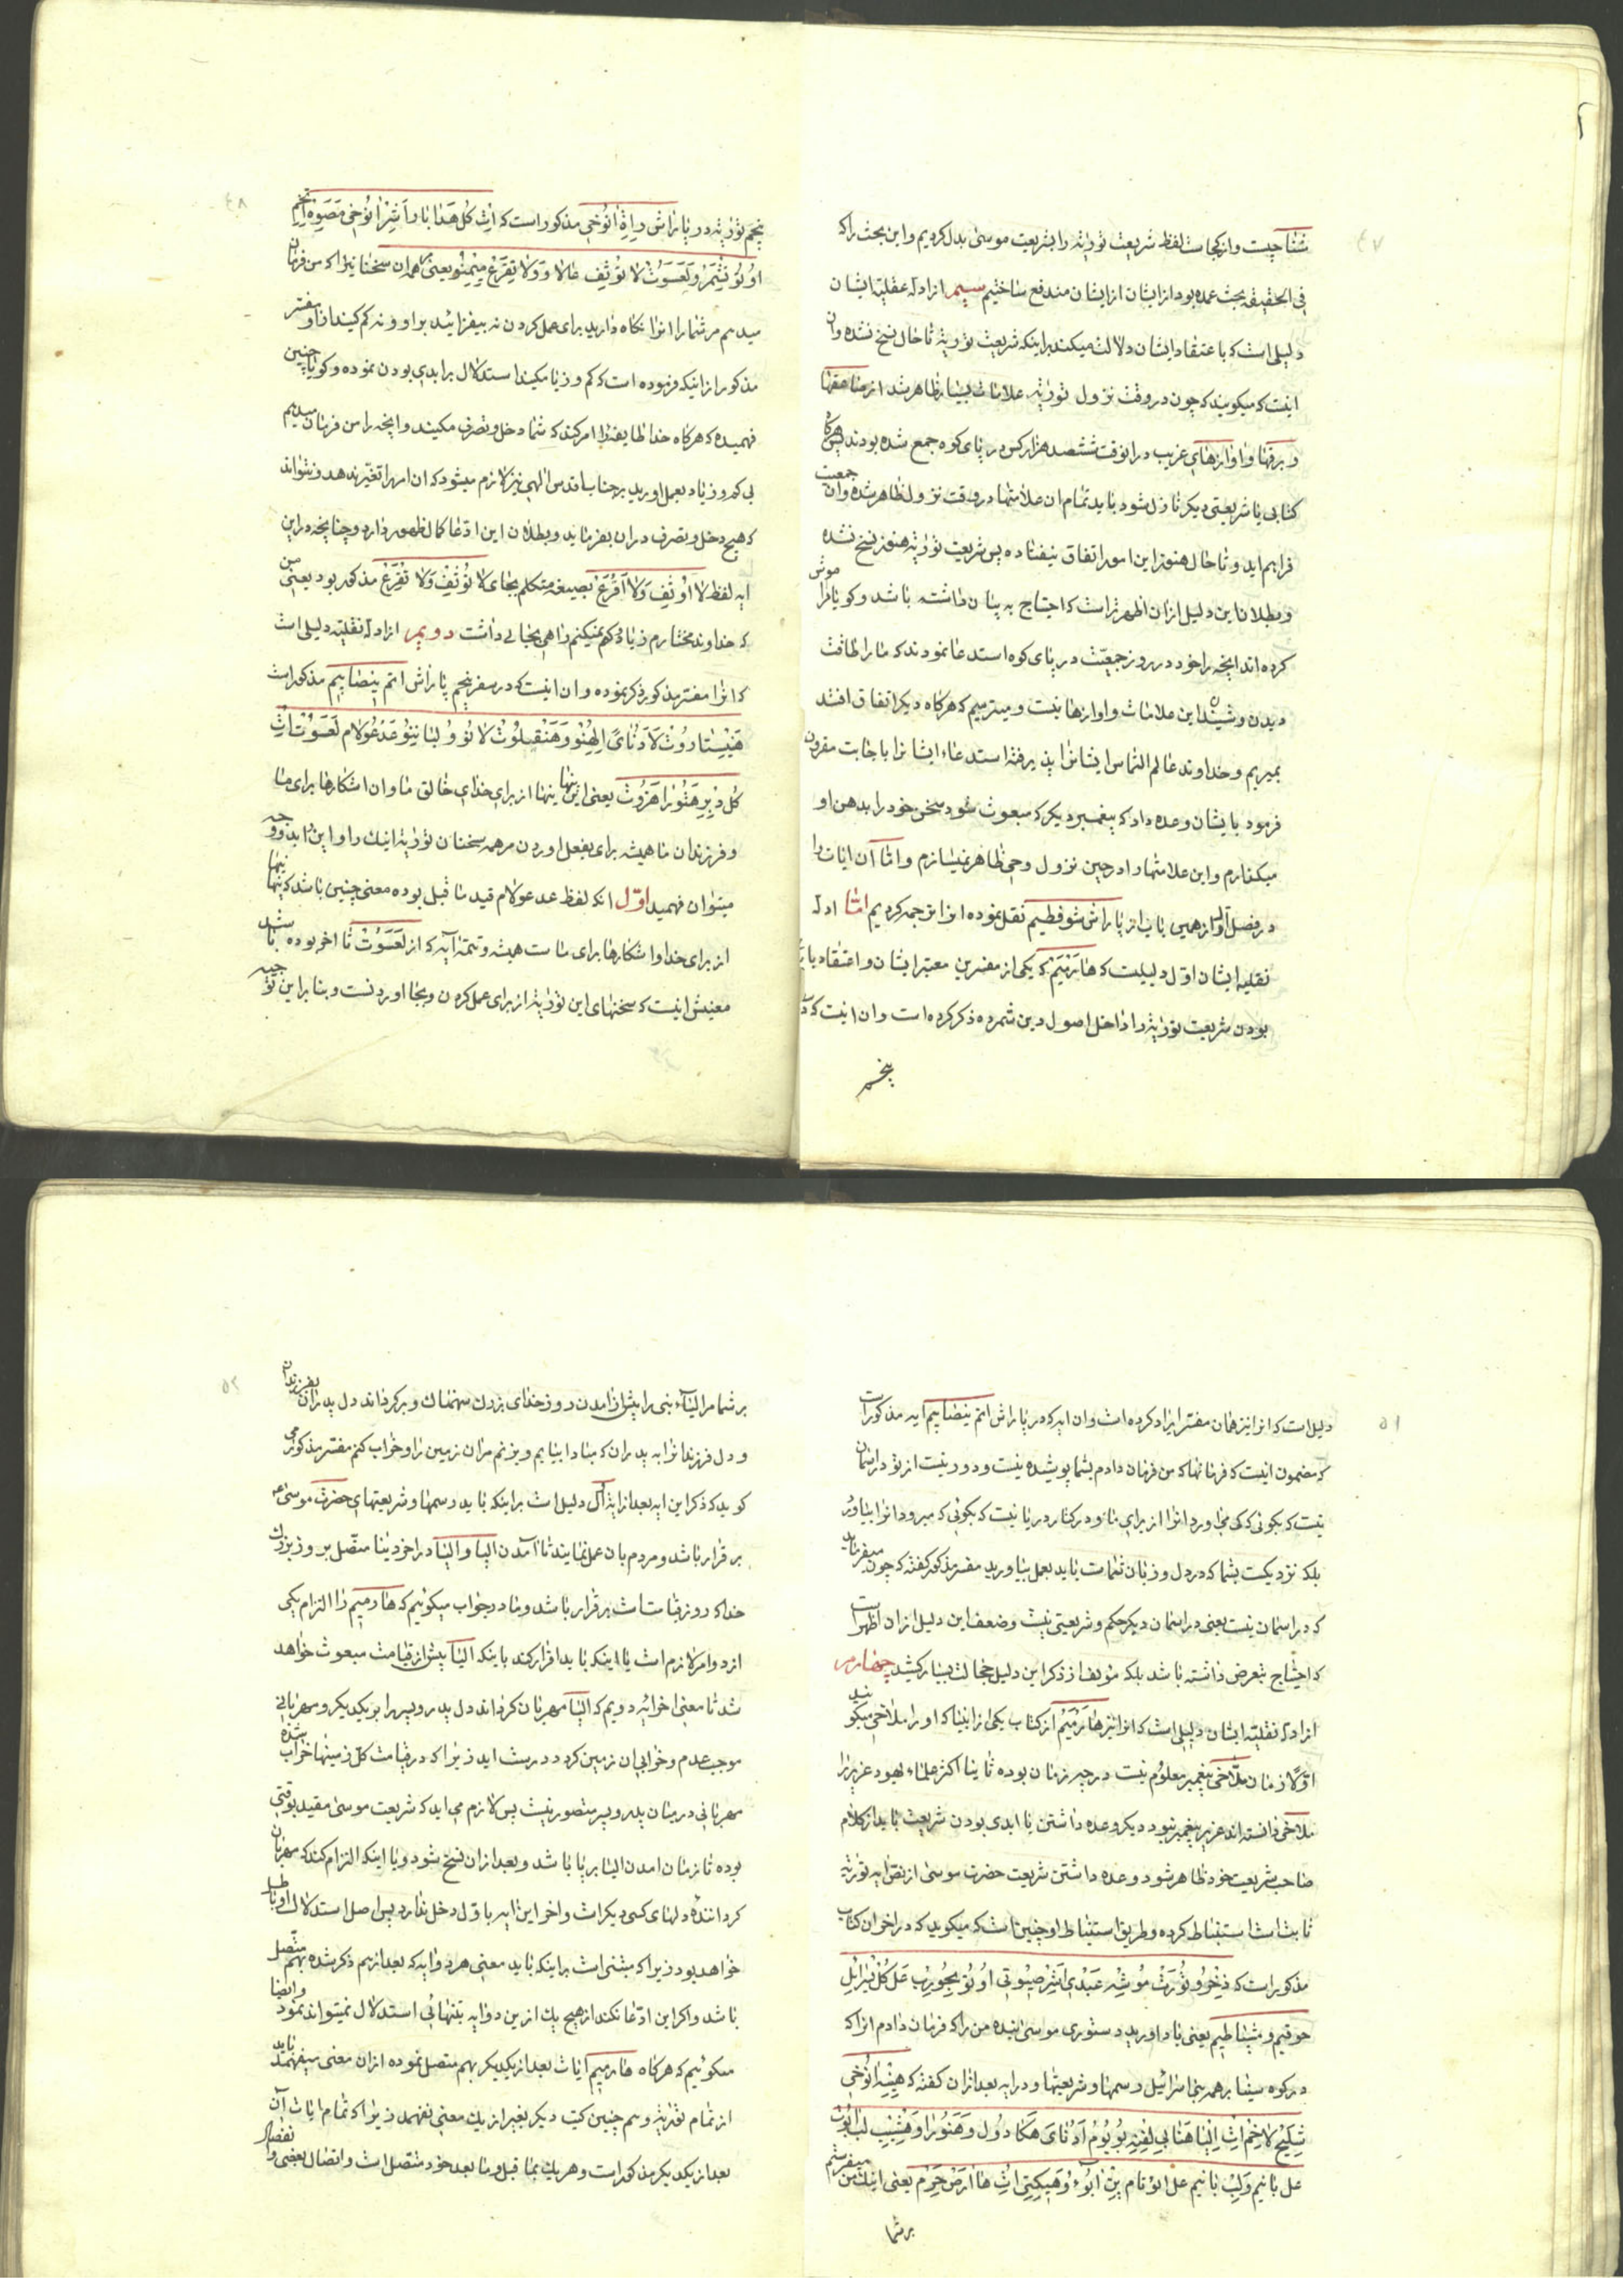 ٤٧
شما چیست و از کجاست لفظ شریعت توریة را بشریعت موسی بدل کردیم و این بحث را که
فی الحقیقه بحث عمده بود از ایشان از ایشان مندفع ساختیم سیم از ادله عقلیه ایشان
دلیلی است که باعتقاد ایشان دلالت میکند بر اینکه شریعت توریة تا حال نسخ نشده و ان
اینست که میکویند که چون در وقت نزول توریة علامات بسیار ظاهر شد از صاعقها
و برقها و اوازهای غریب در انوقت ششصد هزار کس در پای کوه جمع شده بودند پس هرکاه
کتابی یا شریعتی دیکر نازل شود باید تمام ان علامتها در وقت نزول ظاهر شده و ان جمعیت
فراهم اید و تا حال هنوز این امور اتفاق نیفتاده پس شریعت توریة هنوز نسخ نشده
و بطلان این دلیل از ان اظهر تر است که احتیاج به بیان داشته باشد و کویا فراموش
کرده اند انچه را خود در روز جمعیت در پای کوه استدعا نمودند که ما را طاقت
دیدن و شنیدن این علامات و اوازها نیست و میترسیم که هرکاه دیکر اتفاق افتد
بمیریم و خداوند عالم التماس ایشانرا پذیرفته استدعاء ایشانرا باجابت مقرون
فرمود بایشان وعده داد که پیغمبر دیکر که مبعوث شود سخن خود را بدهن او
میکذارم و این علامتها را در حین نزول وحی ظاهر نمیسازم و اما آن ایات را
در فصل اول از همین باب از پاراش شوفطیم نقل نموده انرا ترجمه کردیم امّا ادله
نقلیه ایشان اوّل دلیلیست که هارمیم که یکی از مفسرین معتبر ایشان و اعتقاد
بودن شریعت توریة را داخل اصول دین شمرده ذکر کرده است و ان اینست که در
پنجم
٤٨
پنجم توریة در پاراش راة انوخی مذکور است که اِث کُل هَدابار اَشِر انوُخی مَصَوِه اِتخِم
اوُتوُ تشمَرو لَعَسَوُت لا توُثِف عالاو وَلا تِقرَع مِیمنّو یعنی همه ان سخنها نیز اکه من فرمان
میدهم مر شما را انرا نکاه دارید برای عمل کردن نه بیفزائید بر او و نه کم کنید از او مفسر
مذکور از اینکه فرموده است که کم و زیاد مکنید استدلال بر ابدی بودن نموده و کویا چنین
فهمیده که هرکاه خدا طایفه را امر کند که شما دخل و تصرف مکنید و انچه را من فرمان میدهم
بی کم و زیاد بعمل اورید بر جناب اقدس الهی نیز لازم میشود که ان امر را تغیر ندهد و نتواند
که هیچ دخل و تصرف در ان بفرماید و بطلان این ادّعا کمال ظهور دارد و چنانچه در این
ایه لفظ لا اوُثِف وَلا اَقرَع بصیغه متکلم بجای لا توُثِف وَلا تِقرَع مذکور بود یعنی من
که خداوند مختارم زیاد و کم نمیکنم راهی بجائے داشت دویم از ادله نقلیه دلیلی است
که انرا مفسر مذکور ذکر نموده و ان اینست که در سفر پنجم پاراش اتم نیصابیم مذکور است
هَنیستاروُث لَادنای اِلهِنوُ وَهَنیقلوُت لانوُ وُلبانینوُ عَدعوُلام لَعَسَوُت اِث
کُل دیبرِه هَتوُرا هَزوُث یعنی این پنهانیها از برای خدای خالق ما و ان اشکارها برای ما
و فرزندان ما همیشه برای بفعل اوردن مر همه سخنان توریة اینک را و این را بدو وجه
میتوان فهمید اوّل انکه لفظ عدعولام قید ما قبل بوده معنی چنین باشد که پنهانیها
از برای خدا و اشکارها برای ماست همیشه و تتمه ایه که از لَعَسَوُت تا اخر بوده باشد
معنیش اینست که سخنهای این توریة از برای عمل کردن و بجا اوردنست و بنا بر این توجیه
٥١
دلیل است که انرا نیز همان مفسر ایراد کرده است و ان ایه که در پاراش اتم نیضابیم ایه مذکور است
که مضمون اینست که فرمانها که من فرمان دادم بشما پوشیده نیست و دور نیست از تو در اسمان
نیست که بکوئی که کی می اورد انرا از برای ما و در کنار دریا نیست که بکوئی که میرود انرا بیاورد
بلکه نزدیکست بشما که در دل و زبان شماست باید بعمل بیاورید مفسر مذکور کفته که چون میفرماید
که در اسمان نیست یعنی در اسمان دیکر حکم و شریعتی نیست و ضعف این دلیل از ان اظهر است
که احتیاج بتعرض داشته باشد بلکه مؤلف از ذکر این دلیل خجالت بسیار کشید چهارم
از ادله نقلیه ایشان دلیلی است که انرا نیز هارمیم از کتاب یکی از انبیا که او را ملاخی میکویند
اوّلا زمان ملاخی پیغمبر معلوم نیست در چه زمان بوده ثانیا اکثر علماء یهود عزیر را
ملاخی دانسته اند عزیر پیغمبر نبود دیکر وعده داشتن یا ابدی بودن شریعت باید از کلام
صاحب شریعت خود ظاهر شود و وعده داشتن شریعت حضرت موسی از نصّ ایه توریة
ثابت است استنباط کرده و طریق استنباط او چنین است که میکوید که در اخر ان کتاب
مذکور است که ذیخرو توُرَث موُشِه عَبدی اَشِر صیویتی اوُتوُ بِحوُرِب عَل کُل یَیسرائل
حوقیم وُمیشپاطیم یعنی یاد اورید دستوری موسی بنده من را که فرمان دادم انرا که
در کوه سینا بر همه بنی اسرائیل رسمها و شریعتها و در ایه بعد از ان کفته که هینه انوُخی
شلیح لاخِم اِث اِلیا هَنابی لِفنِه بوُیوُم اَدوُنای هَکادوُل وَهَنوُرا وَهِشیب لب ابوُت
عل بانیم وَلِب بانیم عل ابوُتام پن ابوُء وُهیکیتی اِث هاارِص حِرِم یعنی اینک من میفرستم
بر شما
٥٢
بر شما مر الیاء بنی را پیش از امدن روز خدای بزرک سهمناک و برکرداند دل پدران بفرزندان
و دل فرزندانرا به پدران که مبادا بیایم و بزنم مر ان زمین را و خراب کنم مفسر مذکور می
کوید که ذکر این ایه بعد از ایه اول دلیل است بر اینکه باید رسمها و شریعتهای حضرت موسی ع
برقرار باشد و مردم بان عمل نمایند تا امدن الیا و الیا در اخر دنیا متصل بروز بزرک
خدا که روز قیامت است برقرار باشد و ما در جواب میکوئیم که هارمیم را التزام یکی
از دو امر لازم است یا اینکه باید اقرار کند باینکه الیا پیش از قیامت مبعوث خواهد
شد تا معنی اخر ایه دویم که الیا مهربان کرداند دل پدر و پسر را بر یکدیکر و مهربانی
موجب عدم و خرابی ان زمین کردد درست اید زیرا که در قیامت کل زمینها خراب شده
مهربانی در میان پدر و پسر متصور نیست پس لازم می اید که شریعت موسی مقید بوقتی
بوده تا زمان امدن الیا بر پا باشد و بعد از ان نسخ شود و یا اینکه التزام کند که مهربان
کرداننده دلهای کسی دیکر است و اخر این ایه باوّل دخل ندارد پس اصل استدلال او باطل
خواهد بود زیرا که مبتنی است بر اینکه باید معنی هر دو ایه که بعد از هم ذکر شده بهم متّصل
باشد و اکر این ادّعا نکند از هیچ یک از این دو ایه بتنهائی استدلال نمیتواند نمود و ایضا
میکوئیم که هرکاه هارمیم ایات بعد از یکدیکر بهم متصل نموده از ان معنی میفهمد باید
از تمام توریة و سم چنین کتب دیکر بغیر از یک معنی نفهمد زیرا که تمام ایات ان
بعد از یکدیکر مذکور است و هر یک بما قبل و ما بعد خود متصل است و اتصال بعضی و انفصال